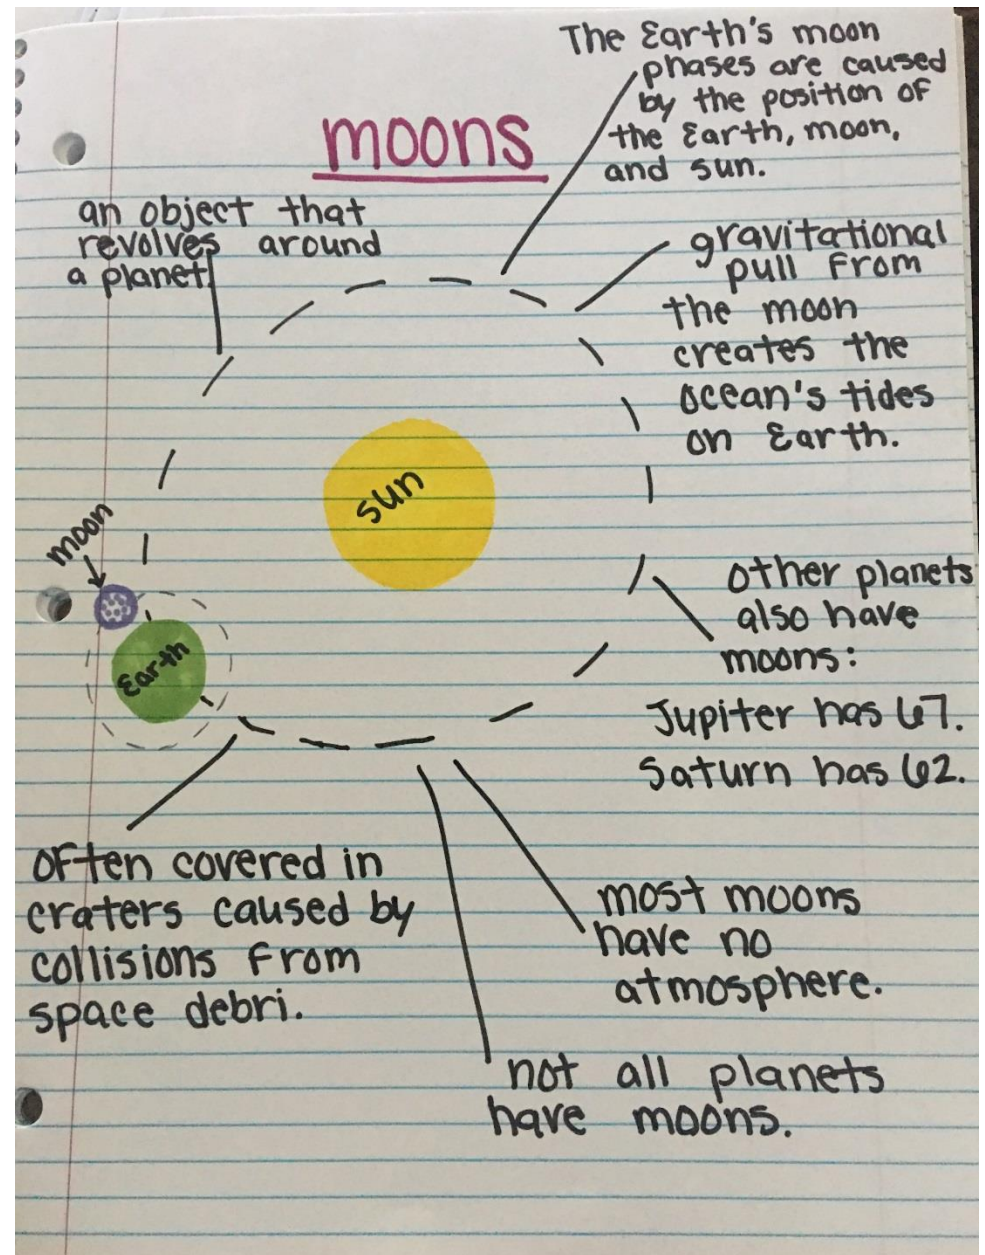 The Earth's moon
phases are caused
by the position of
the Earth, moon,
and sun.
moons
an object that
revolves around
a planet.
gravitational
pull from
the moon
creates the
ocean's tides
on Earth.
sun
moon
Earth
other planets
also have
moons:
Jupiter has 67.
Saturn has 62.
often covered in
craters caused by
collisions from
space debri.
most moons
have no
atmosphere.
not all planets
have moons.